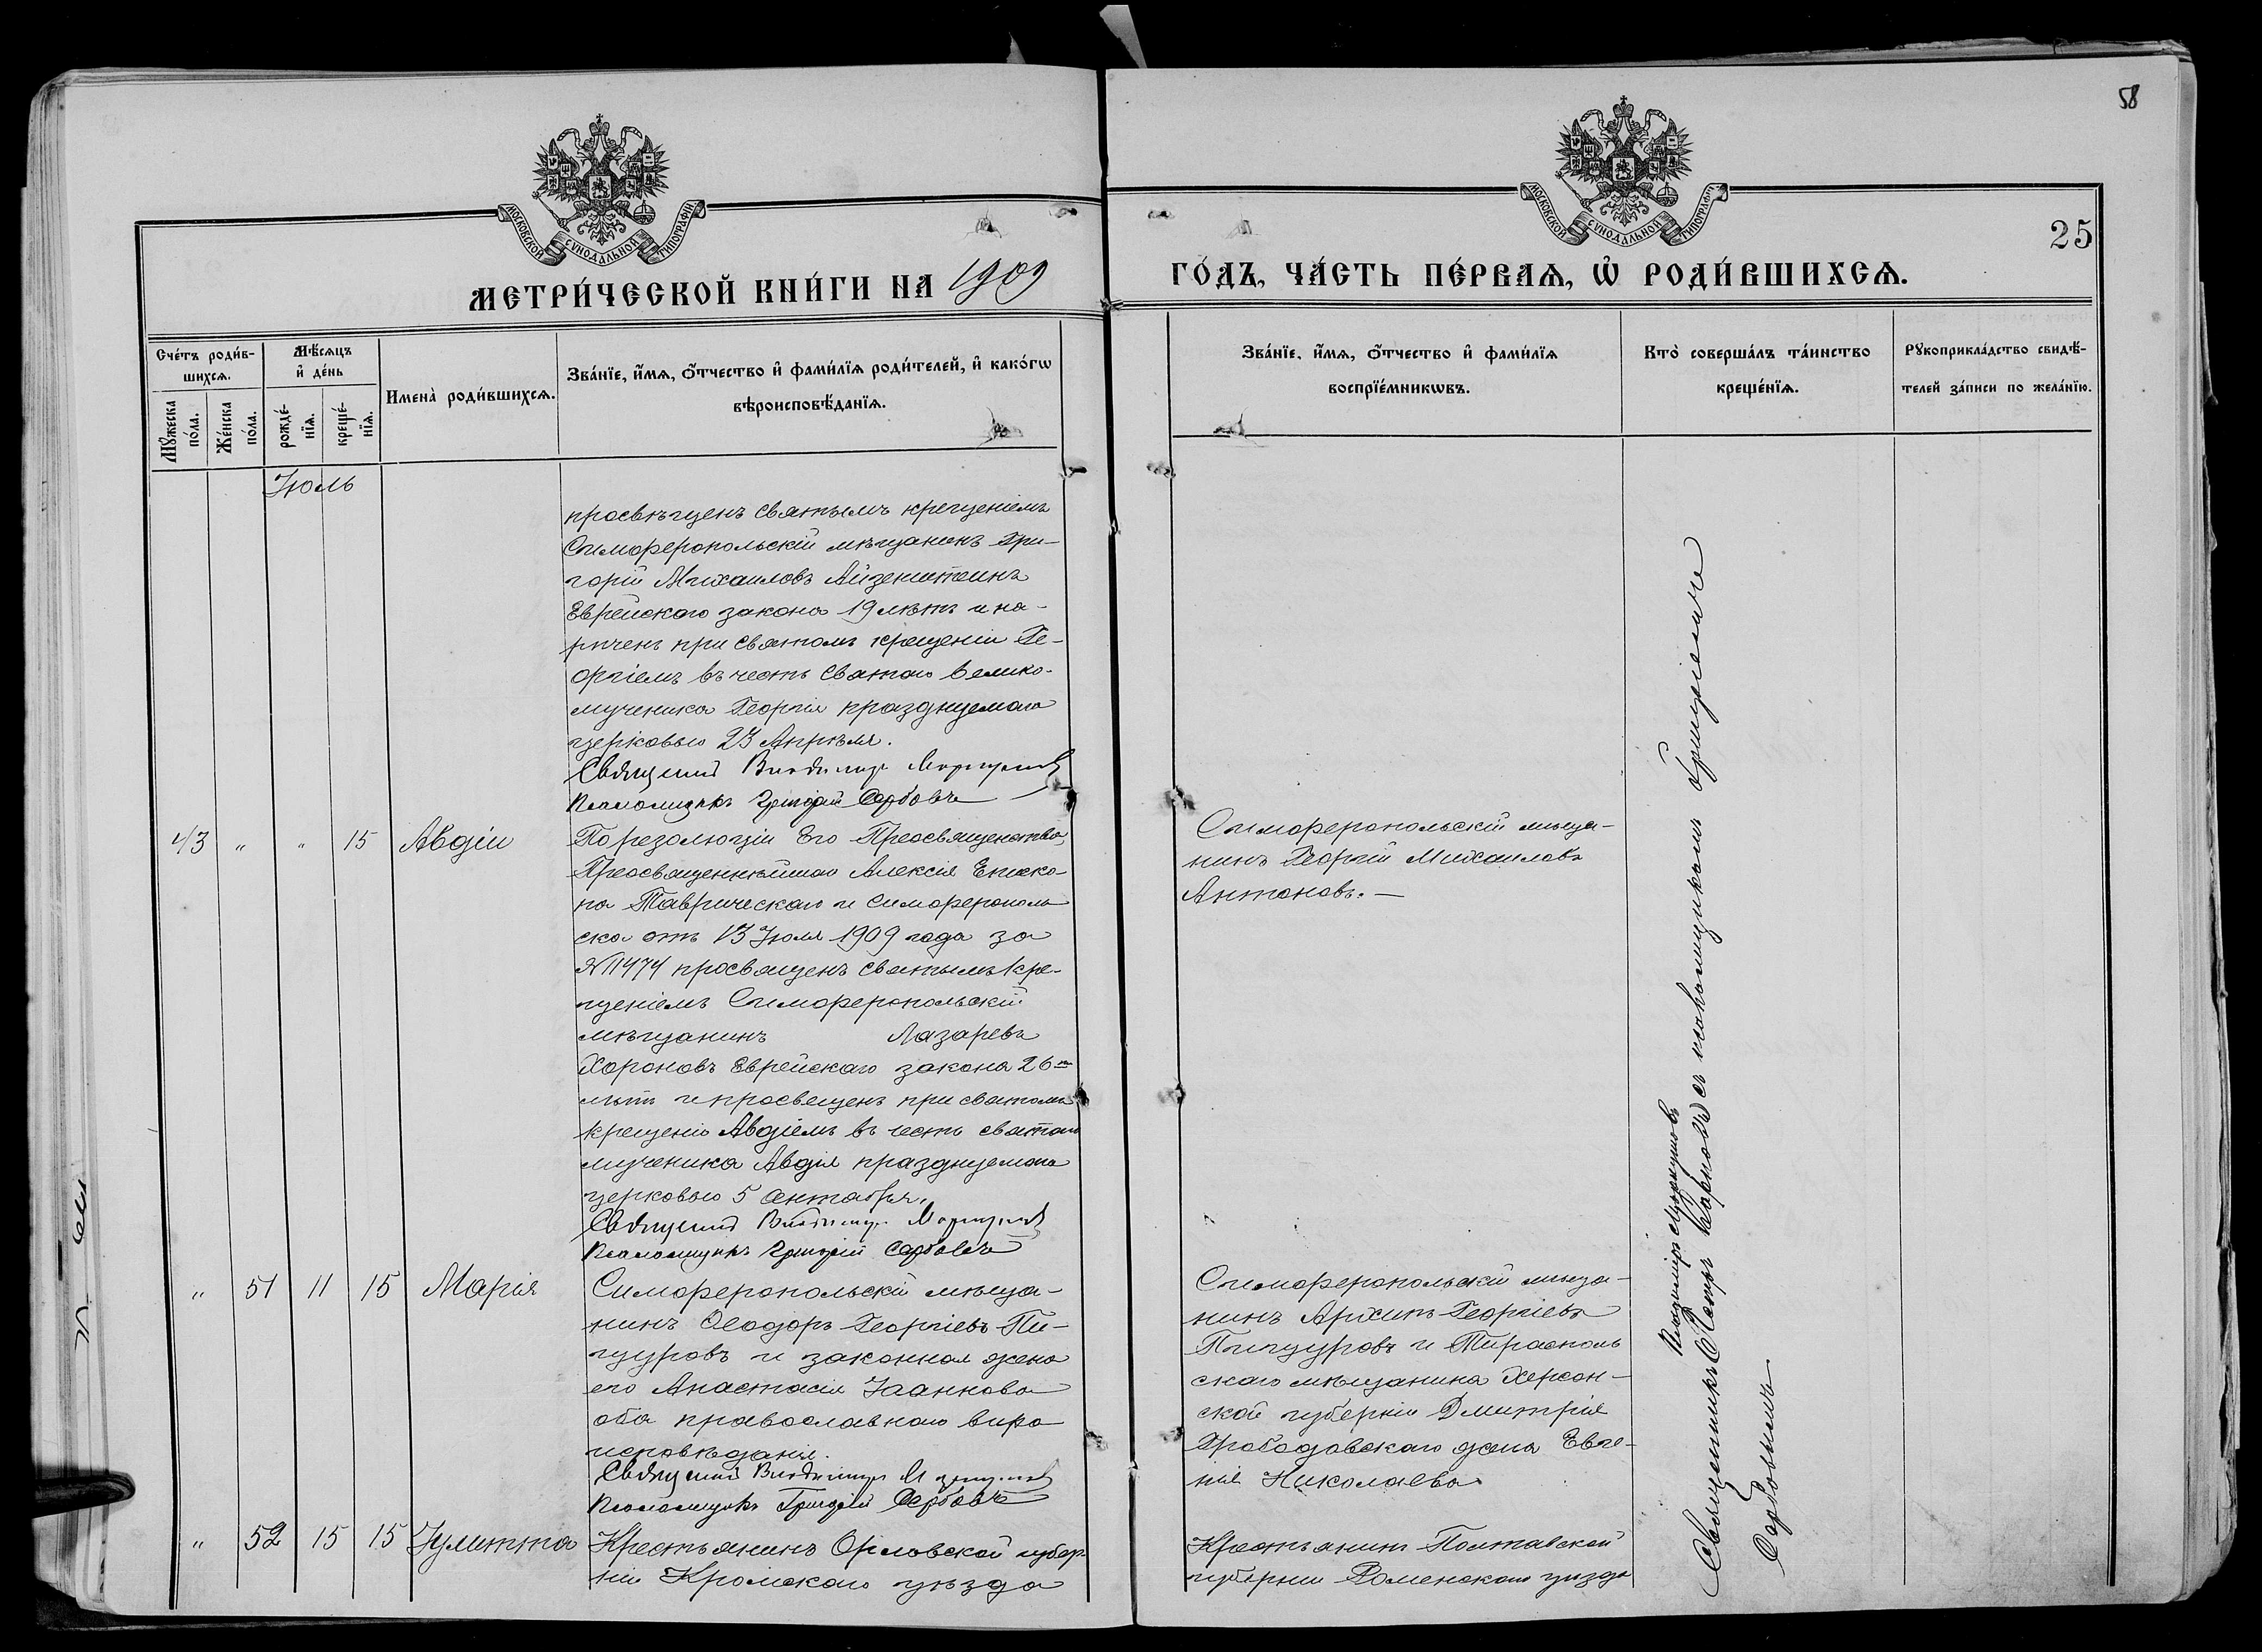 58
МОСКОВСКОЙ СѴНОДАЛЬНОЙ ТИПОГРАФІИ
МОСКОВСКОЙ СѴНОДАЛЬНОЙ ТИПОГРАФІИ
25
МЕТРИ́ЧЕСКОЙ КНИ́ГИ НА 1909
ГО́ДЪ, ЧА́СТЬ ПЕ́РВАѦ, Ѡ҆ РОДИ́ВШИХСѦ.
Сче́тъ роди́в-
шихсѧ.
Мꙋ́жеска по́ла.
Же́нска по́ла.
Мѣ́сѧцъ
и҆ де́нь
рожде́-
нїѧ.
креще́-
нїѧ.
Имена̀ роди́вшихсѧ.
Зва́нїе, и҆́мѧ, ѻ҆́тчество и҆ фами́лїѧ роди́телей, и҆ како́гѡ
вѣроисповѣ́данїѧ.
Зва́нїе, и҆́мѧ, ѻ҆́тчество и҆ фами́лїѧ
воспрїе́мникѡвъ.
Кто̀ соверша́лъ та́инство
креще́нїѧ.
Рꙋкоприкла́дство свидѣ́-
телей за́писи по жела́нїю.
Іюль
просвѣщенъ святымъ крещеніемъ
Симферопольскій мѣщанинъ Гри-
горій Михаиловъ Айзенштейнъ
Еврейскаго закона 19 лѣтъ и на-
рѣченъ при святомъ крещеніи Ге-
оргіемъ въ честь святаго велико-
мученика Георгія празднуемаго
церковью 23 Апрѣля.
Священникъ Владимиръ
Псаломщикъ Григорій Сербовъ
43 " " 15 Авдій
По резолюціи Его Преосвященства,
Преосвященнѣйшаго Алексія Еписко-
па Таврическаго и Симферополь
ска отъ 13 Іюля 1909 года за
№ 11474 просвященъ святымъ кре-
щеніемъ Симферопольскій
мѣщанинъ Лазаревъ
Хороновъ Еврейскаго закона 26 ти
лѣтъ и просвещенъ при святомъ
крещеніи Авдіемъ въ честь святаго
мученика Авдія празднуемаго
церковью 5 Сентября.
Священникъ Владимиръ
Псаломщикъ Григорій Сербовъ
Симферопольскій мѣща-
нинъ Георгій Михаиловъ
Антоновъ. —
" 51 11 15 Марія
Симферопольскій мѣща-
нинъ Ѳеодоръ Георгіевъ Пи-
щуровъ и законная жена
его Анастасія Іоаннова
оба православнаго вѣро
исповѣданія.
Священникъ Владимиръ
Псаломщикъ Григорій Сербовъ
Симферопольскій мѣща-
нинъ Архипъ Георгіевъ
Пищуровъ и Тирасполь
скаго мѣщанина Херсон-
ской губерніи Дмитрія
жена Евге-
нія Николаева
" 52 15 15 Іулитта
Крестьянинъ Орловской губер
ніи Кромскаго уѣзда
Крестьянинъ Полтавской
губерніи Роменскаго уѣзда
Владимиръ
Священникъ Петръ Карповъ съ псаломщикомъ Григоріемъ
Сербовымъ